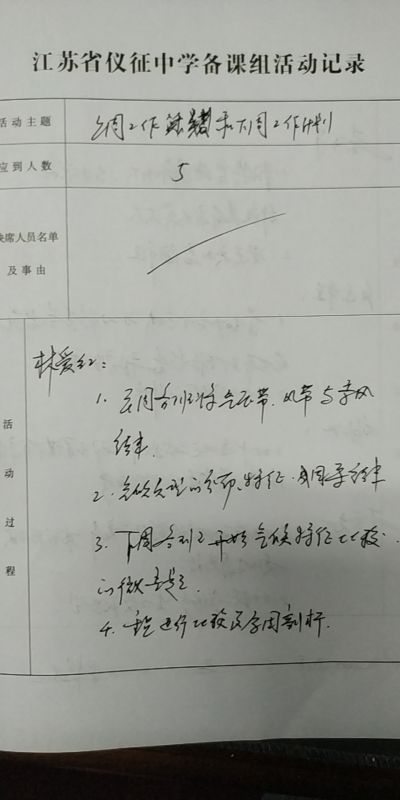 江苏省仪征中学备课组活动记录
活动主题
上周工作总结和下周工作计划
应到人数
5
缺席人员名单
及事由
活动过程
林爱红：
1. 上周各班将气压带、风带与季风
结束.
2. 气候类型的分布、特征、成因要结束
3. 下周各班开始气候特征比较.
的微专题.
4. 进行比较及原因剖析.